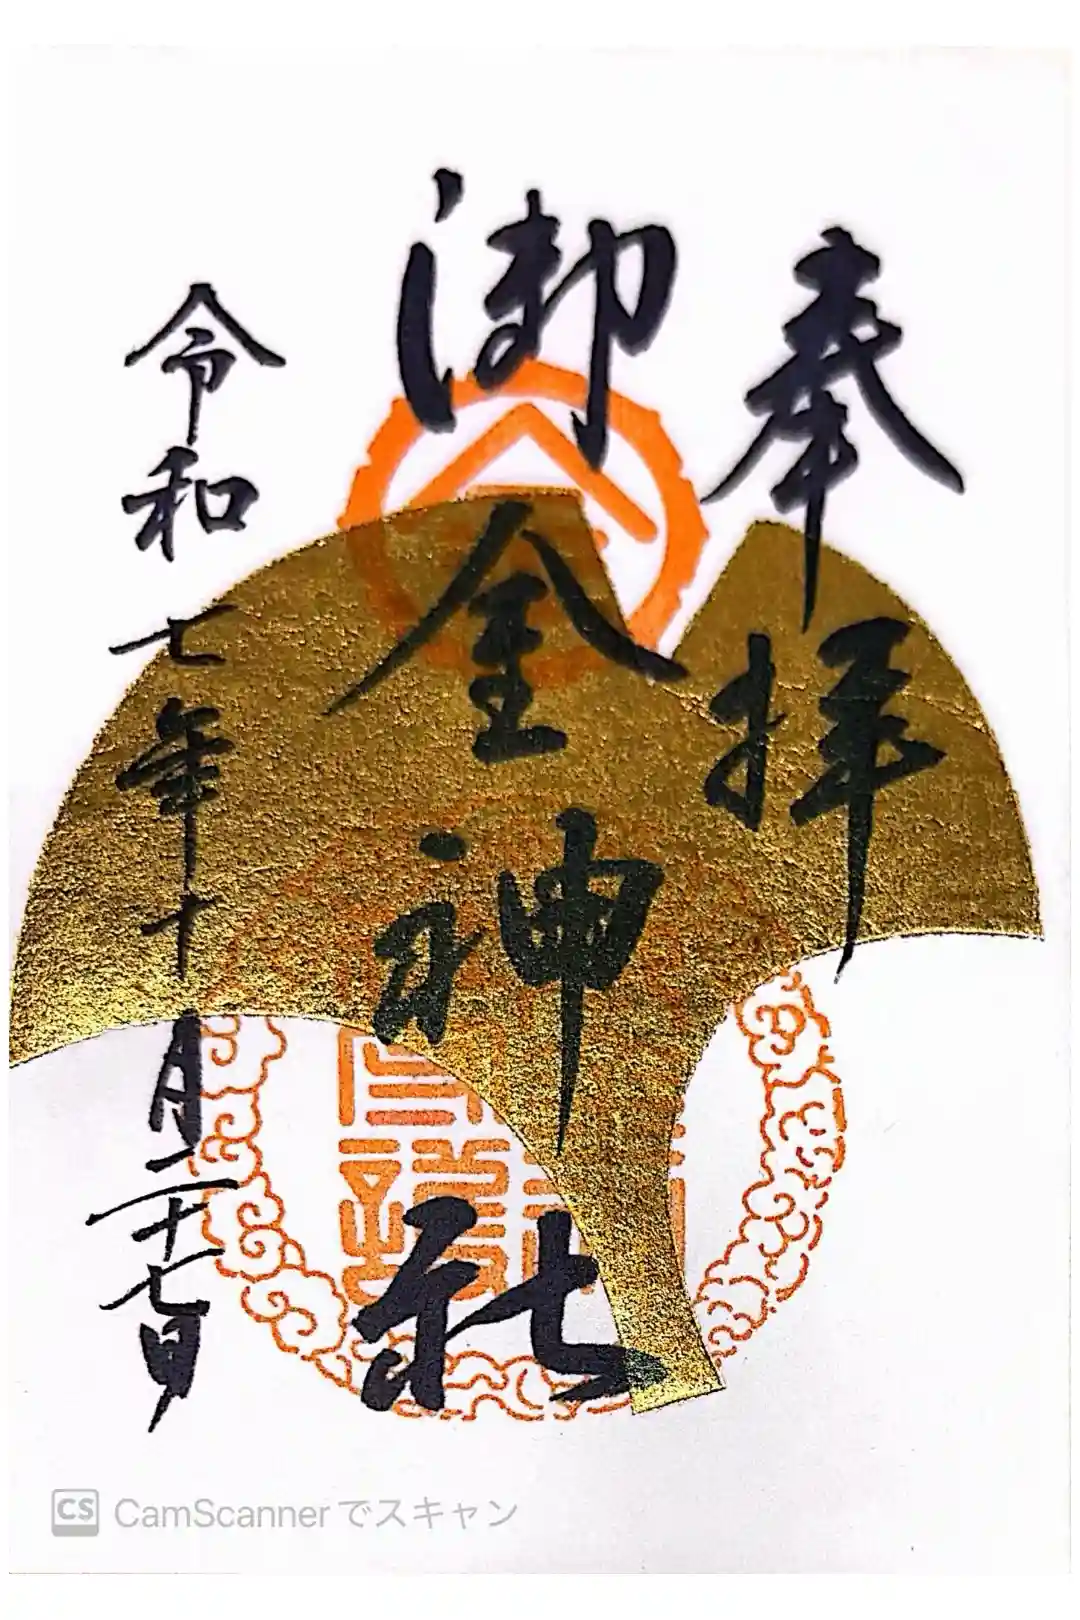 奉拝
御金神社
令和七年十月二十七日
CS CamScannerでスキャン